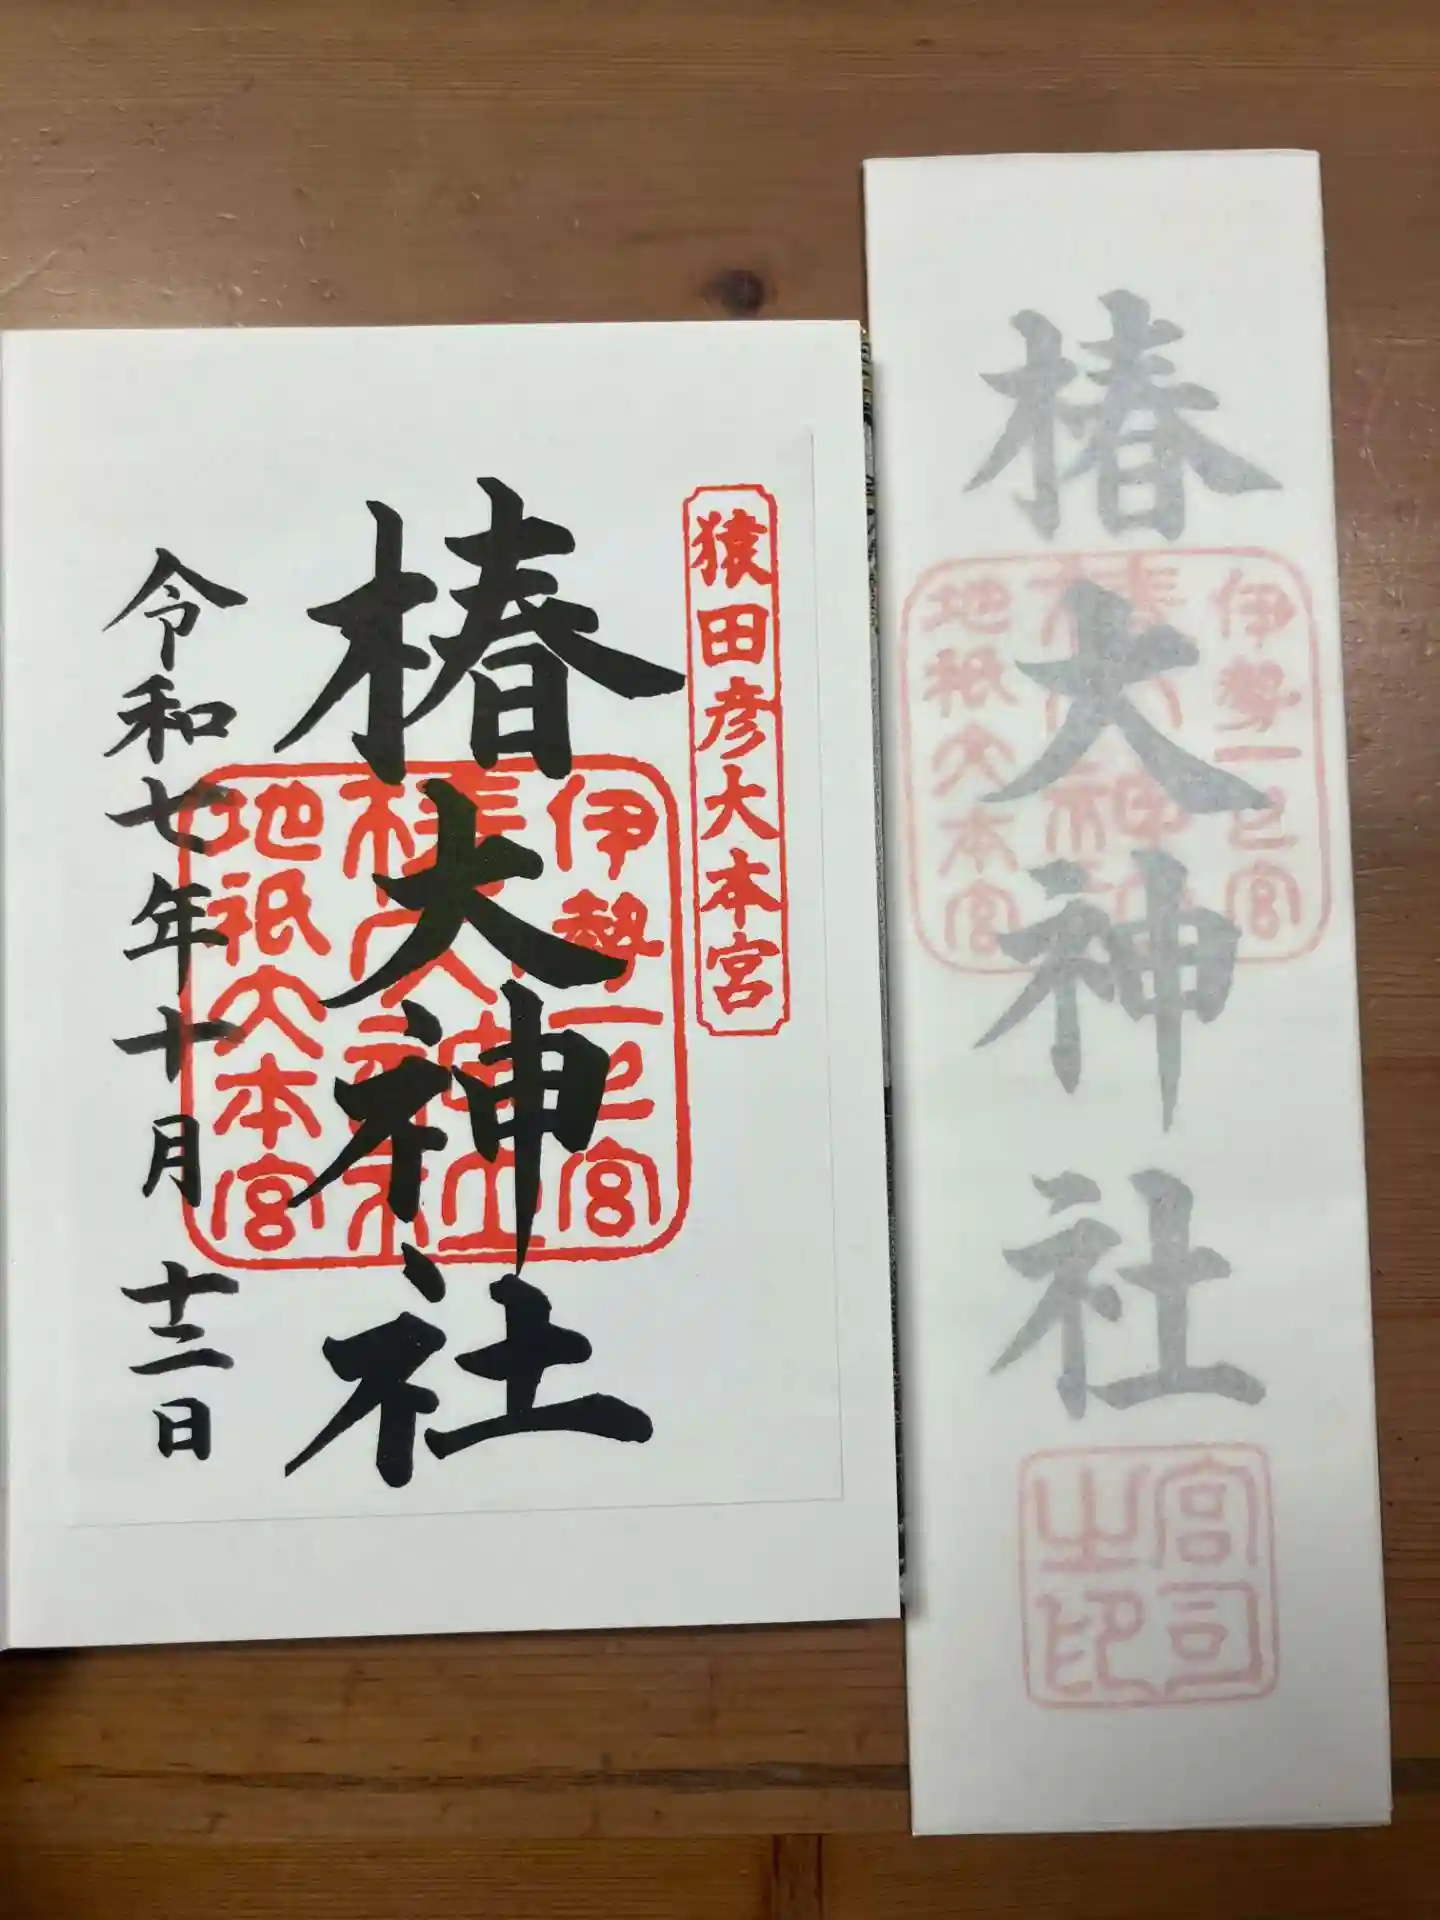 猿田彦大本宮
椿大神社
伊勢一之宮
椿大神社
地祇大本宮
令和七年十月十二日
椿大神社
伊勢一之宮
椿大神社
地祇大本宮
宮司
之印